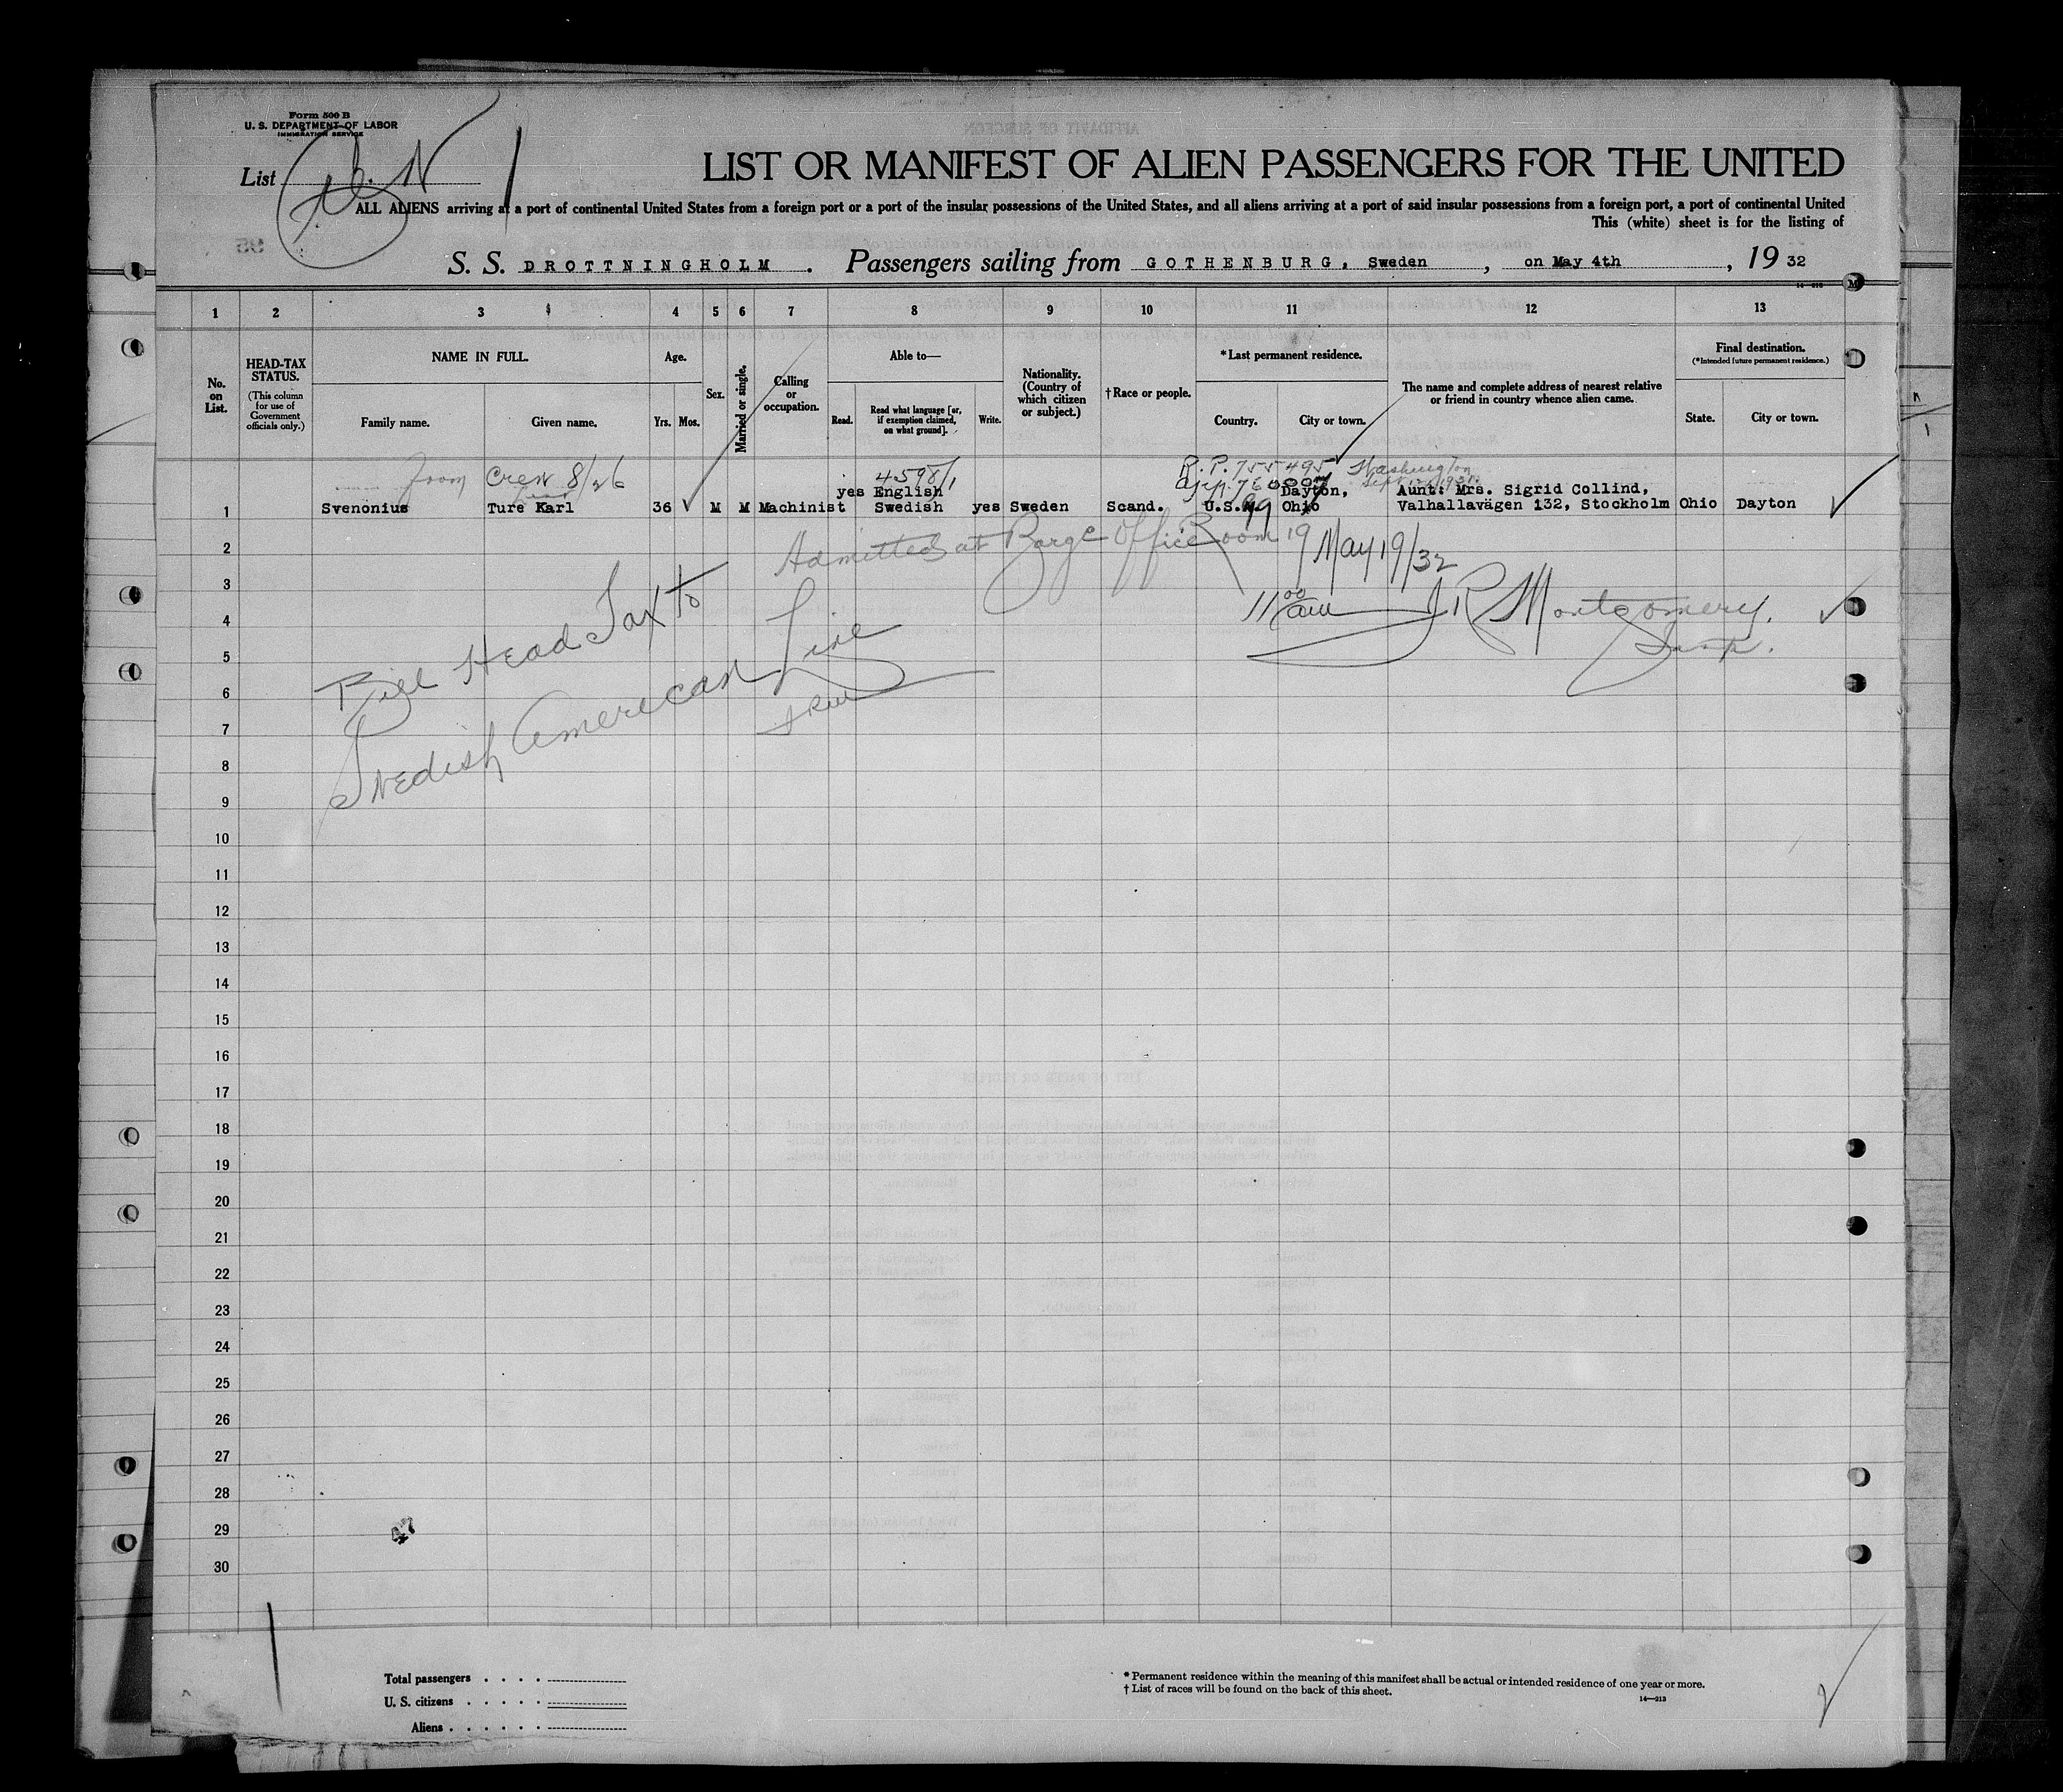 Form 500 B
U. S. DEPARTMENT OF LABOR
IMMIGRATION SERVICE
List
LIST OR MANIFEST OF ALIEN PASSENGERS FOR THE UNITED
ALL ALIENS arriving at a port of continental United States from a foreign port or a port of the insular possessions of the United States, and all aliens arriving at a port of said insular possessions from a foreign port, a port of continental United
This (white) sheet is for the listing of
S. S. DROTTNINGHOLM . Passengers sailing from GOTHENBURG, Sweden , on May 4th , 19 32
1 2 3 4 5 6 7 8 9 10 11 12 13
No. on List.
HEAD-TAX STATUS.
(This column for use of Government officials only.)
NAME IN FULL.
Family name. Given name.
Age.
Yrs. Mos.
Sex.
Married or single.
Calling or occupation.
Able to—
Read. Read what language [or, if exemption claimed, on what ground]. Write.
Nationality. (Country of which citizen or subject.)
† Race or people.
* Last permanent residence.
Country. City or town.
The name and complete address of nearest relative or friend in country whence alien came.
Final destination.
(* Intended future permanent residence.)
State. City or town.
from Crew 8/26 4598/1 R. P. 755495 Washington
yes English Dayton, Aunt: Mrs. Sigrid Collind,
1 Svenonius Ture Karl 36 M M Machinist Swedish yes Sweden Scand. U.S. Ohio Valhallavägen 132, Stockholm Ohio Dayton
Admitted at Barge Office Room 19 May 19/32
11 00 am J R Montgomery.
Insp.
Bill Head Tax to
Swedish American Line
2
3
4
5
6
7
8
9
10
11
12
13
14
15
16
17
18
19
20
21
22
23
24
25
26
27
28
29
30
Total passengers . . . .
U. S. citizens . . . . .
Aliens . . . . . .
* Permanent residence within the meaning of this manifest shall be actual or intended residence of one year or more.
† List of races will be found on the back of this sheet.
14—213